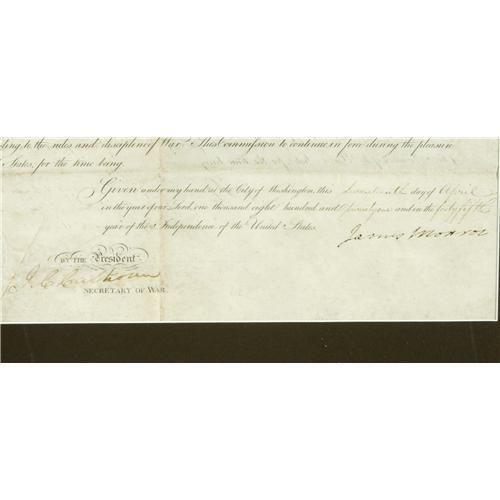 ding to the rules and discipline of War. This Commission to continue in force during the pleasure
States, for the time being.
Given under my hand at the City of Washington, this day of April
in the year of our Lord, one thousand eight hundred and twenty one and in the forty fifth
year of the Independence of the United States.
James Monroe
BY THE President
J. C. Calhoun
SECRETARY OF WAR.